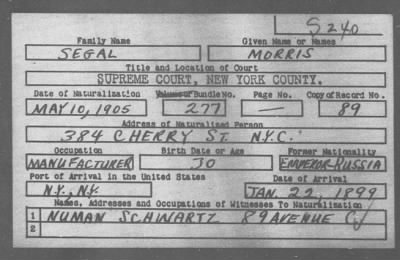 S240
Family Name Given Name or Names
SEGAL MORRIS
Title and Location of Court
SUPREME COURT, NEW YORK COUNTY.
Date of Naturalization Volume or Bundle No. Page No. Copy of Record No.
MAY 10, 1905 277 — 89
Address of Naturalized Person
384 CHERRY ST. N.Y.C.
Occupation Birth Date or Age Former Nationality
MANUFACTURER 30 EMPEROR-RUSSIA
Port of Arrival in the United States Date of Arrival
N.Y., N.Y. JAN. 22, 1899
Names, Addresses and Occupations of Witnesses To Naturalization
1 NUMAN SCHWARTZ 89 AVENUE C
2